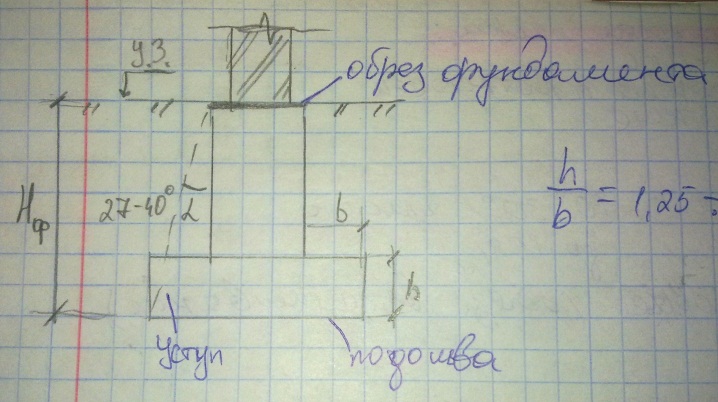 У.З.
обрез фундамента
27-40°
α
Hф
b
h
h/b = 1,25 ÷
уступ
подошва